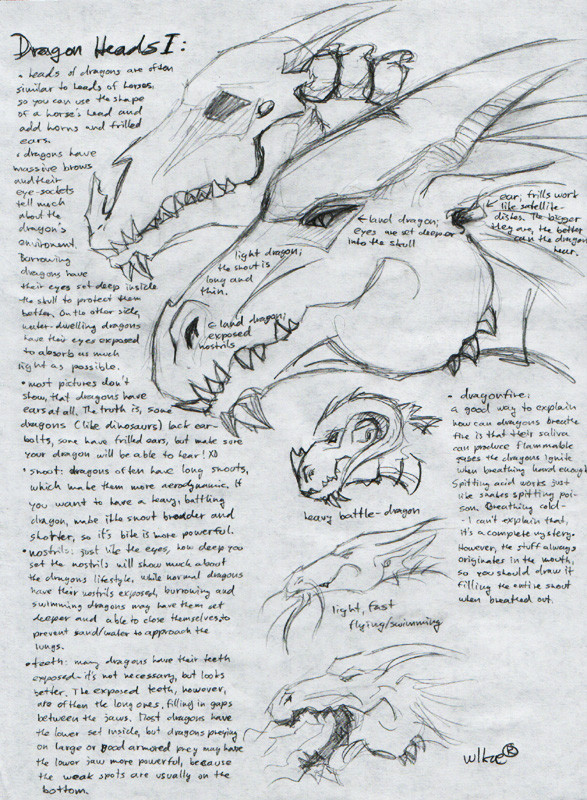 Dragon Heads I:
• heads of dragons are often
similar to heads of horses,
so you can use the shape
of a horse's head and
add horns and frilled
ears.
• dragons have
massive brows
and their
eye-sockets
tell much
about the
dragon's
environment.
Burrowing
dragons have
their eyes set deep inside
the skull to protect them
better. On the other side,
water-dwelling dragons
have their eyes exposed
to absorb as much
light as possible.
• most pictures don't
show, that dragons have
ears at all. The truth is, some
dragons (like dinosaurs) lack ear-
bolts, some have frilled ears, but make sure
your dragon will be able to hear! XD
• snout: dragons often have long snouts,
which make them more aerodynamic. If
you want to have a heavy, battling
dragon, make the snout broader and
shorter, so it's bite is more powerful.
• nostrils: just like the eyes, how deep you
set the nostrils will show much about
the dragons lifestyle, while normal dragons
have their nostrils exposed, burrowing and
swimming dragons may have them set
deeper and able to close themselves, to
prevent sand/water to approach the
lungs.
• teeth: many dragons have their teeth
exposed - it's not necessary, but looks
better. The exposed teeth, however,
are often the long ones, filling in gaps
between the jaws. Most dragons have
the lower set inside, but dragons preying
on large or good armored prey may have
the lower jaw more powerful, because
the weak spots are usually on the
bottom.
←land dragon;
eyes are set deeper
into the skull
←ear frills work
like satellite-
dishes. The bigger
they are, the better
can the dragon
hear.
light dragon;
the snout is
long and
thin.
←land dragon;
exposed
nostrils
heavy battle-dragon
light, fast
flying/swimming
• dragonfire:
a good way to explain
how can dragons breathe
fire is that their saliva
can produce flammable
gases the dragons ignite
when breathing hard enough
Spitting acid works just
like snakes spitting poi-
son. Breathing cold-
- I can't explain that,
it's a complete mystery.
However, the stuff always
originates in the mouth,
so you should draw it
filling the entire snout
when breathed out.